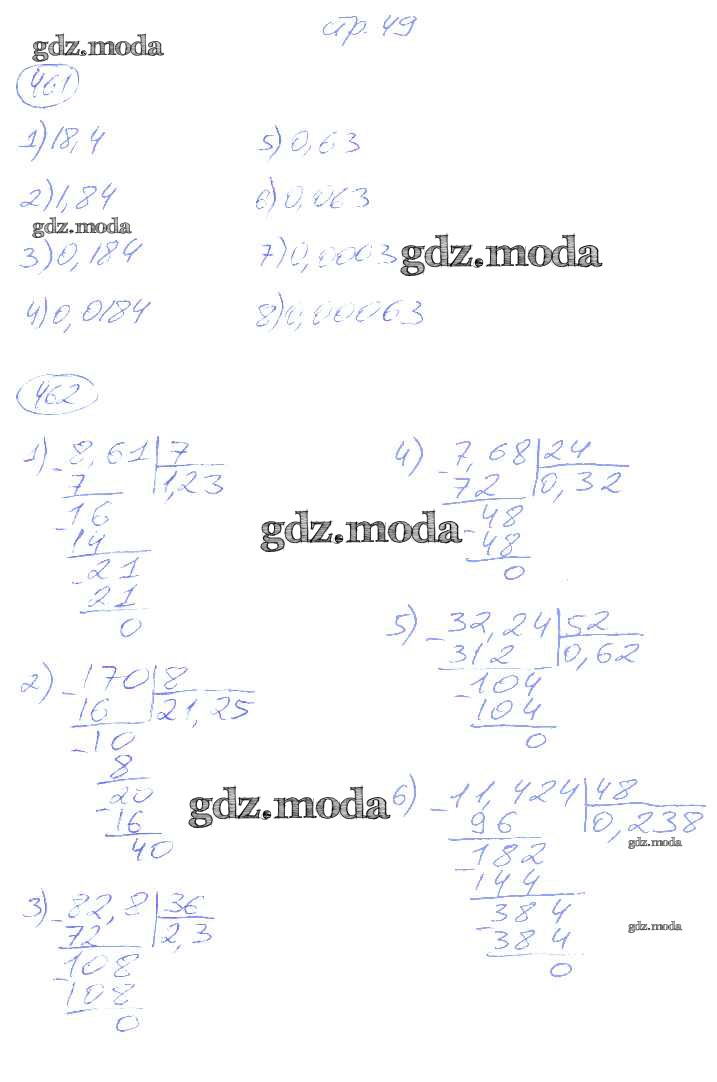 стр. 49
gdz.moda
461
1) 18,4
5) 0,63
2) 1,84
6) 0,063
gdz.moda
3) 0,184
7) 0,0003
gdz.moda
4) 0,0184
8) 0,00063
462
1) - 8,61 | 7
7 | 1,23
- 16
14
- 21
21
0
gdz.moda
2) - 170 | 8
16 | 21,25
- 10
8
- 20
16
40
gdz.moda
3) - 82,8 | 36
72 | 2,3
- 108
108
0
4) - 7,68 | 24
72 | 0,32
- 48
48
0
5) - 32,24 | 52
312 | 0,62
- 104
104
0
6) - 11,424 | 48
96 | 0,238
gdz.moda
- 182
144
- 384
gdz.moda
- 384
0